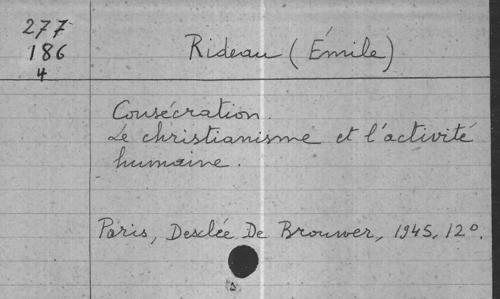 277
186
4
Rideau (Émile)
Consécration.
Le christianisme et l'activité
humaine.
Paris, Desclée De Brouwer, 1945. 12°.